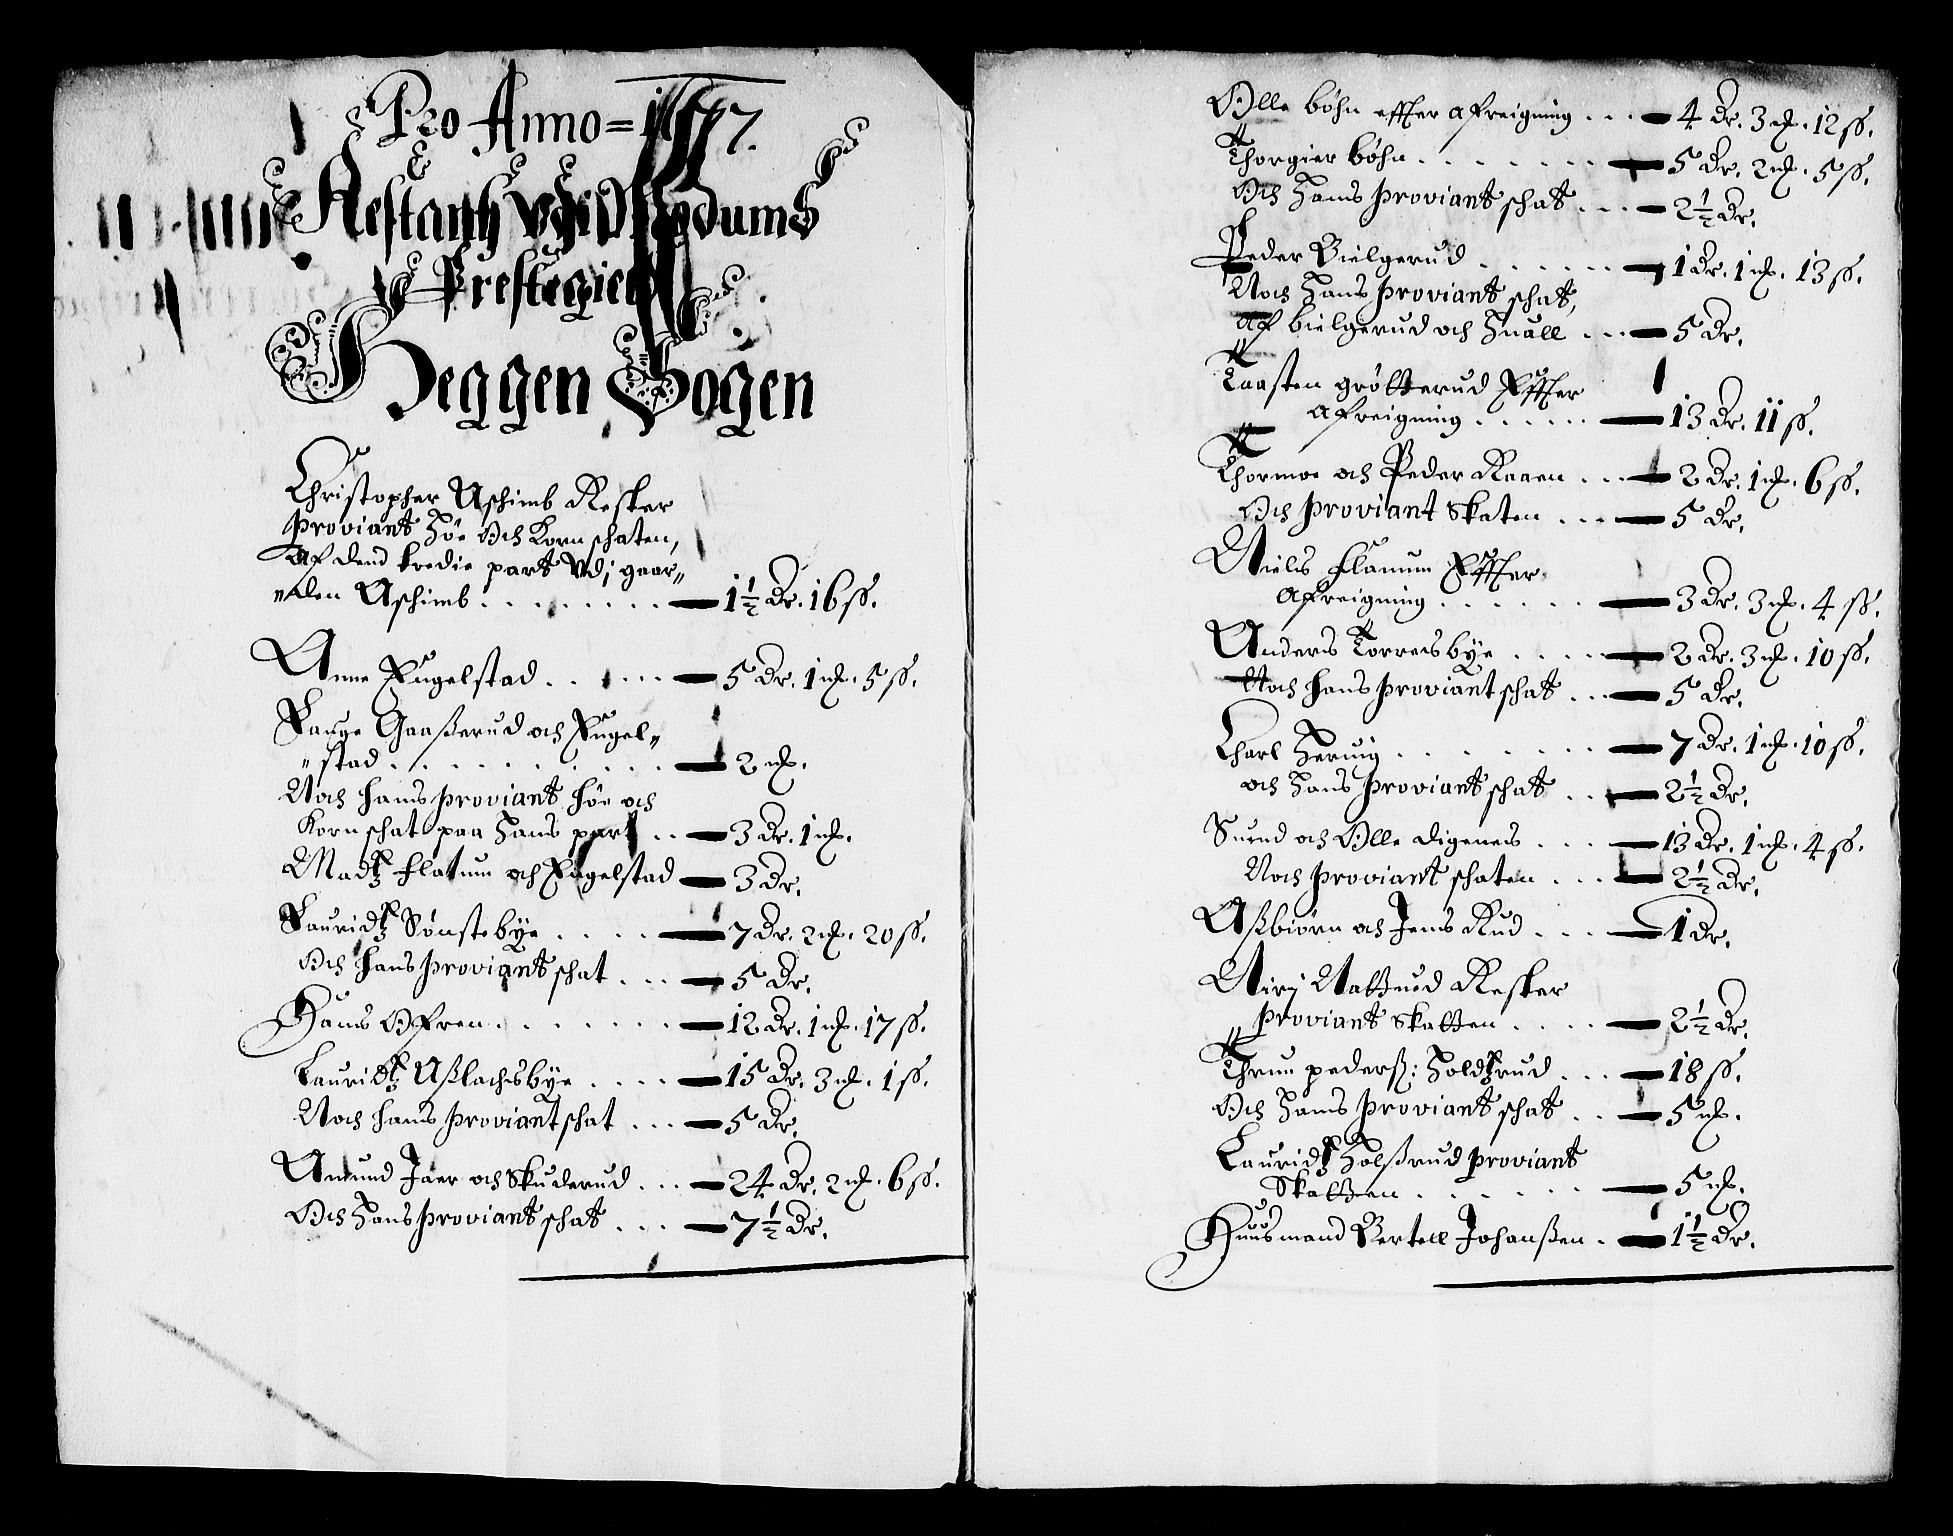 Pro Anno = 1677.
Restantz Udi Modums
Prestegield
Heggen Sogen
Christopher Aschimb Rester
Proviant Höe Och Kornschaten,
Af dend tredie part Udj gaar„
„den Aschimb . . . . . . . . . — 1½ Dr. 16 ss.
Anne Fugelstad . . . . . . — 5 Dr. 1 mk. 5 ss.
Lauge Gaaßerud och Fugel„
„stad . . . . . . . . . . — 2 mk.
Noch hans proviant höe och
Kornschat paa Hans part . . — 3 Dr. 1 mk.
Madtz Flatum och Fugelstad — 3 Dr.
Lauridtz Sønstebye . . . . — 7 Dr. 2 mk. 20 ss.
Och hans proviant schat . . . — 5 Dr.
Hans Ofren . . . . . . . — 12 Dr. 1 mk. 17 ss.
Lauridtz Aßlachsbye . . . . — 15 Dr. 3 mk. 1 ss.
Noch hans proviant schat . . . — 5 Dr.
Amund Jaer och Skuderud . . . — 24 Dr. 2 mk. 6 ss.
Och Hans proviant schat . . . — 7½ Dr.
Olle böhn effter afreigning . . . — 4 Dr. 3 mk. 12 ss.
Thorgier böhn . . . . . . . — 5 Dr. 2 mk. 5 ss.
Och Hans proviant schat . . . — 2½ Dr.
Peder Bielgerud . . . . . . — 1 Dr. 1 mk. 13 ss.
Noch Hans proviant schat,
af bielgerud och Huall . . . — 5 Dr.
Taasten grötterud Effter
afreigning . . . . . . — 13 Dr. 11 ss.
Thormoe och Peder Raaen . . . — 2 Dr. 1 mk. 6 ss.
Och proviant Skaten . . . — 5 Dr.
Niels Flanum Effter
afreigning . . . . . . — 3 Dr. 3 mk. 4 ss.
Anders Torresbye . . . . — 2 Dr. 3 mk. 10 ss.
Noch hans proviant schat . . . — 5 Dr.
Charl Heruig . . . . . . . — 7 Dr. 1 mk. 10 ss.
och Hans proviant schat . . — 2½ Dr.
Suend och Olle digenes . . . — 13 Dr. 1 mk. 4 ss.
Noch proviant schaten . . . — 2½ Dr.
Aßbiörn och Jens Rud . . . — 1 Dr.
Rester
proviant Skatten . . . . — 2½ Dr.
Thrun pederß: Holdtzrud . . . — 18 ss.
Och Hans proviant schat . . — 5 mk.
Lauridtz Holßrud proviant
Skatten . . . . . . — 5 mk.
Huusmand Bertell Johanßen . — 1½ Dr.